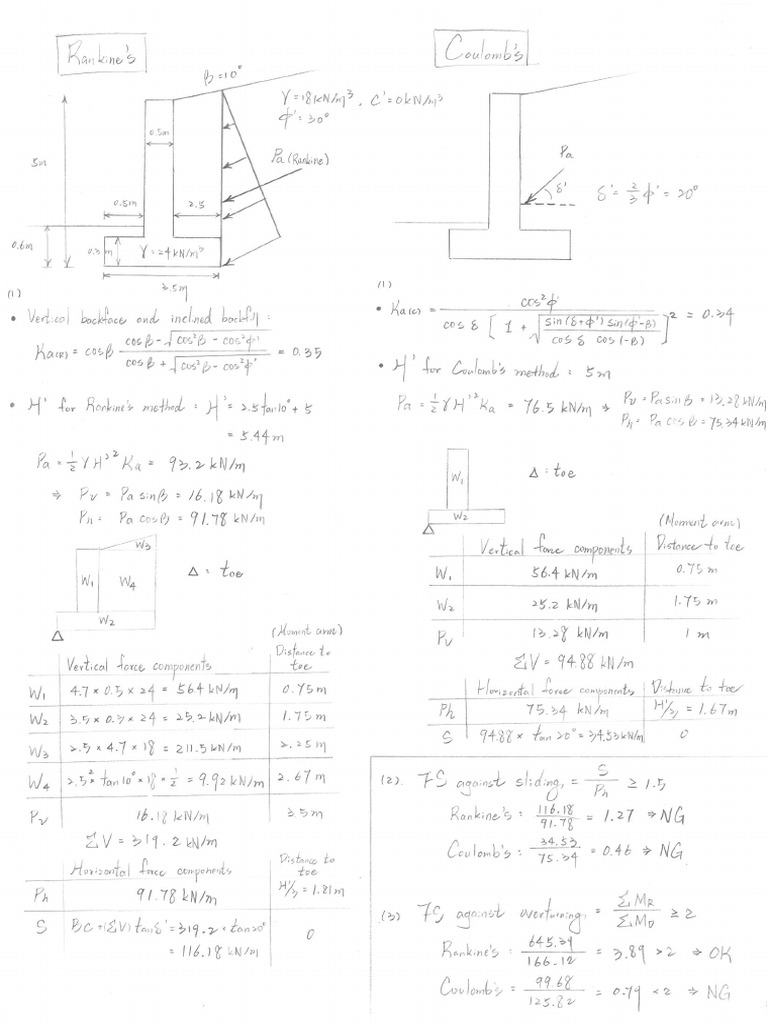 Rankine's
β=10°
γ=18kN/m³, c'=0kN/m³
Φ'=30°
0.5m
5m
Pa (Rankine)
0.5m
2.5
0.6m
0.3m
γ=24kN/m³
3.5m
(1)
• Vertical backface and inclined backfill:
Ka(R) = cosβ (cosβ - √(cos²β - cos²φ')) / (cosβ + √(cos²β - cos²φ')) = 0.35
• H' for Rankine's method : H' = 2.5tan10° + 5
= 5.44m
Pa = ½ γ H'² Ka = 93.2 kN/m
⇒ Pv = Pa sinβ = 16.18 kN/m
Ph = Pa cosβ = 91.78 kN/m
W3
W1
W4
W2
Δ = toe
(Moment arm)
Vertical force components
Distance to toe
W1 4.7 × 0.5 × 24 = 56.4 kN/m 0.75m
W2 3.5 × 0.3 × 24 = 25.2 kN/m 1.75m
W3 2.5 × 4.7 × 18 = 211.5 kN/m 2.25m
W4 2.5² × tan10° × 18 × ½ = 9.92 kN/m 2.67m
Pv 16.18 kN/m 3.5m
ΣV = 319.2 kN/m
Horizontal force components
Distance to toe
Ph 91.78 kN/m H'/3 = 1.81m
S Bc + (ΣV) tanδ' = 319.2 × tan20° 0
= 116.18 kN/m
Coulomb's
Pa
δ'
δ' = ⅔ φ' = 20°
(1)
• Ka(c) = cos²φ' / (cosδ [1 + √(sin(δ+φ') sin(φ'-β) / (cosδ cos(-β)))]²) = 0.34
• H' for Coulomb's method : 5m
Pa = ½ γ H'² Ka = 76.5 kN/m ⇒ Pv = Pa sinβ = 13.28 kN/m
Ph = Pa cosβ = 75.34 kN/m
W1
W2
Δ = toe
(Moment arm)
Vertical force components Distance to toe
W1 56.4 kN/m 0.75m
W2 25.2 kN/m 1.75m
Pv 13.28 kN/m 1m
ΣV = 94.88 kN/m
Horizontal force components Distance to toe
Ph 75.34 kN/m H'/3 = 1.67m
S 94.88 × tan20° = 34.53 kN/m 0
(2). FS against sliding = S/Ph ≥ 1.5
Rankine's : 116.18/91.78 = 1.27 ⇒ NG
Coulomb's : 34.53/75.34 = 0.46 ⇒ NG
(3) FS against overturning = ΣMR/ΣMO ≥ 2
Rankine's : 645.39/166.12 = 3.89 > 2 ⇒ OK
Coulomb's = 99.68/125.82 = 0.79 < 2 ⇒ NG